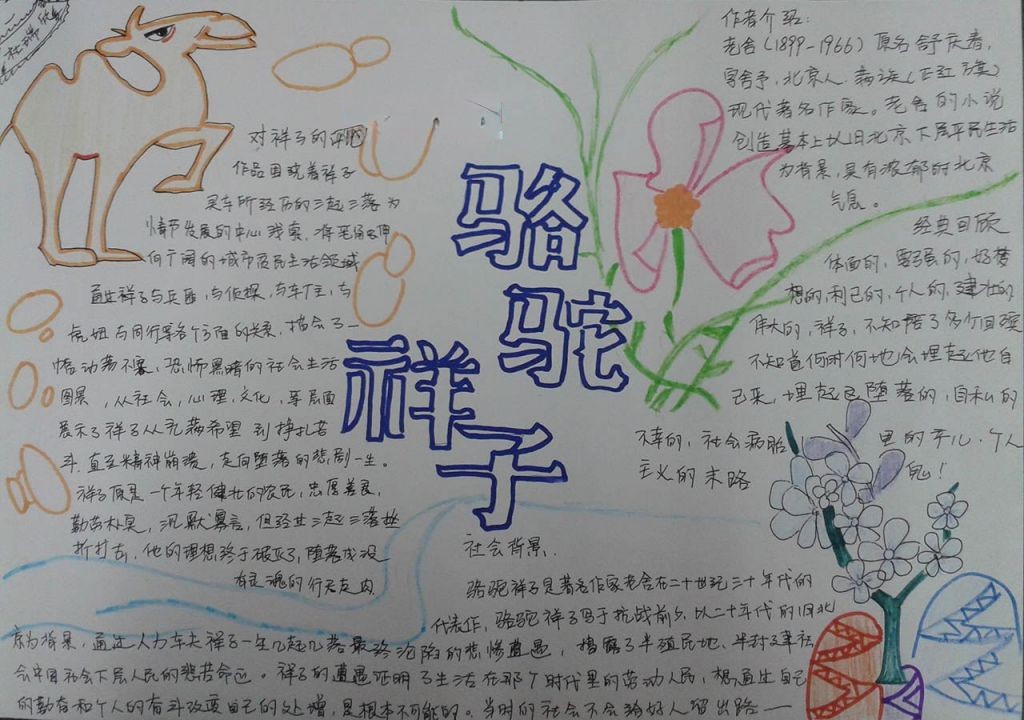 骆驼
祥子
作者介绍:
老舍(1899-1966)原名舒庆春,
字舍予,北京人,满族(正红旗)
现代著名作家。老舍的小说
创造基本上以旧北京下层平民生活
为背景,具有浓郁的北京
气息。
经典回顾
体面的,要强的,好梦
想的,利己的,个人的,健壮的
伟大的,祥子,不知陪了多少回殡
不知道何时何地会埋起他自
己来,埋起这堕落的,自私的
不幸的,社会病胎里的产儿,个人
主义的末路鬼!
对祥子的评论
作品围绕着祥子
买车所经历的三起三落为
情节发展的中心线索,
向广阔的城市贫民生活领域
通过祥子与兵匪,与侦探,与车厂主,与
虎妞与同行等各个方面的关系,描绘了一
幅动荡不安,恐怖黑暗的社会生活
图景,从社会,心理,文化,等层面
展示了祥子从充满希望到挣扎苦
斗,直至精神崩溃,走向堕落的悲剧一生。
祥子原是一个年轻健壮的农民,忠厚善良,
勤劳朴实,沉默寡言,但经过三起三落挫
折打击,他的理想终于破灭了,堕落成没
有灵魂的行尸走肉
社会背景.
骆驼祥子是著名作家老舍在二十世纪三十年代的
代表作,骆驼祥子写于抗战前夕,以二十年代的旧北
京为背景,通过人力车夫祥子一生几起几落最终沦陷的悲惨遭遇,揭露了半殖民地、半封建社
会中国社会下层人民的悲苦命运。祥子的遭遇证明了生活在那个时代里的劳动人民,想通过自己
的勤劳和个人的奋斗改变自己的处境,是根本不可能的。当时的社会不会给好人留出路—